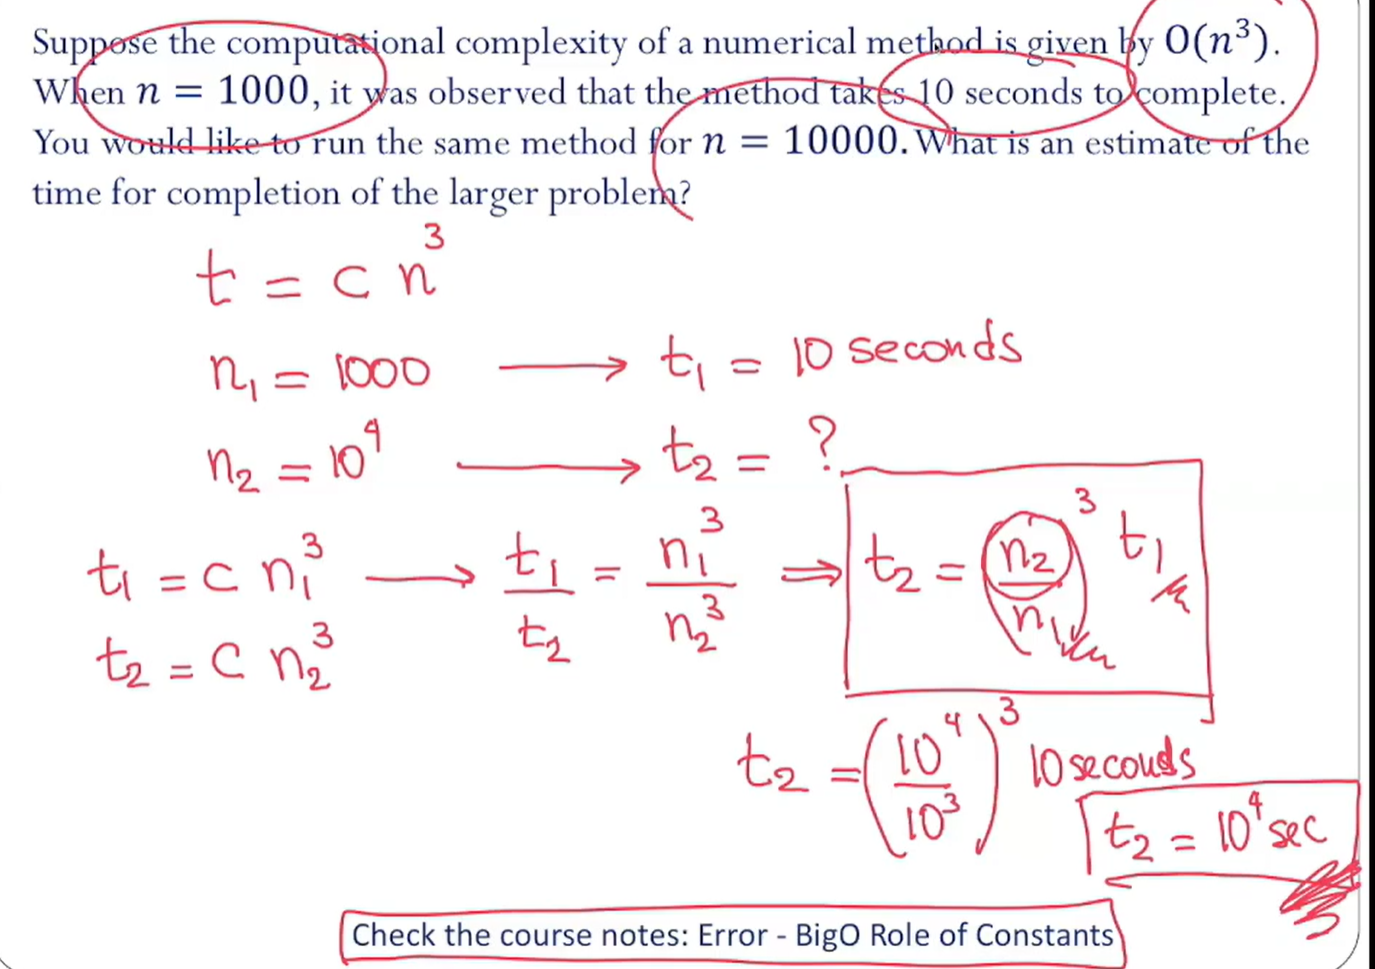 Suppose the computational complexity of a numerical method is given by O(n³).
When n = 1000, it was observed that the method takes 10 seconds to complete.
You would like to run the same method for n = 10000. What is an estimate of the
time for completion of the larger problem?
t = c n³
n₁ = 1000 → t₁ = 10 seconds
n₂ = 10⁴ → t₂ = ?
t₁ = c n₁³ → t₁/t₂ = n₁³/n₂³ ⇒ t₂ = (n₂/n₁)³ t₁
t₂ = c n₂³
t₂ = (10⁴/10³)³ 10 seconds
t₂ = 10⁴ sec
Check the course notes: Error - BigO Role of Constants